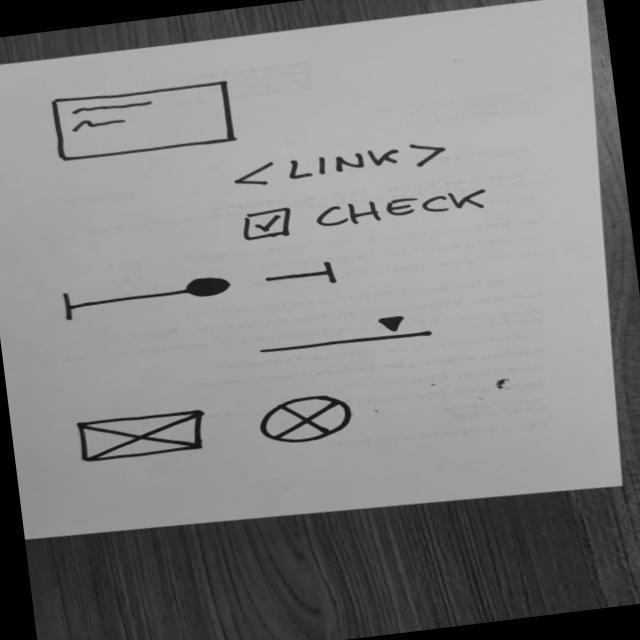 <LINK>
CHECK